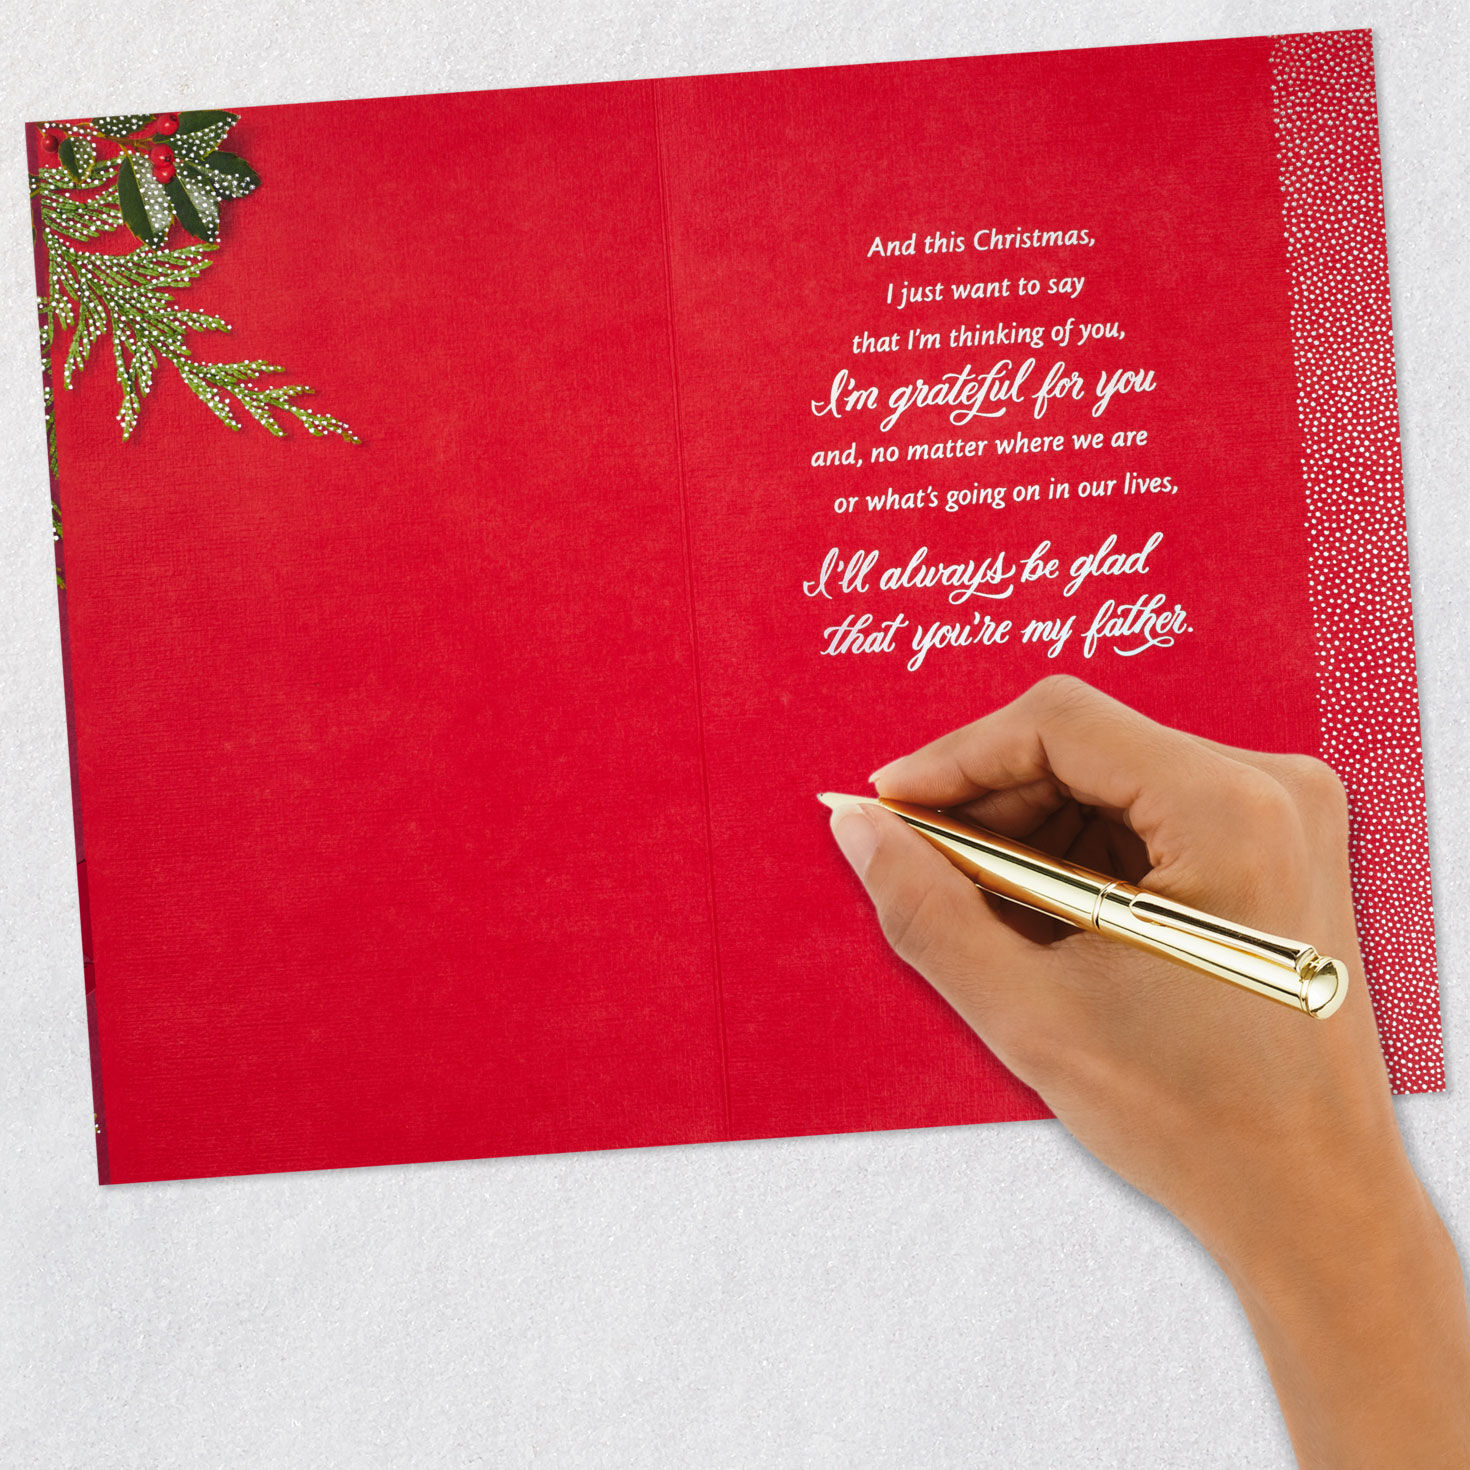 And this Christmas,
I just want to say
that I'm thinking of you,
I'm grateful for you
and, no matter where we are
or what's going on in our lives,
I'll always be glad
that you're my father.